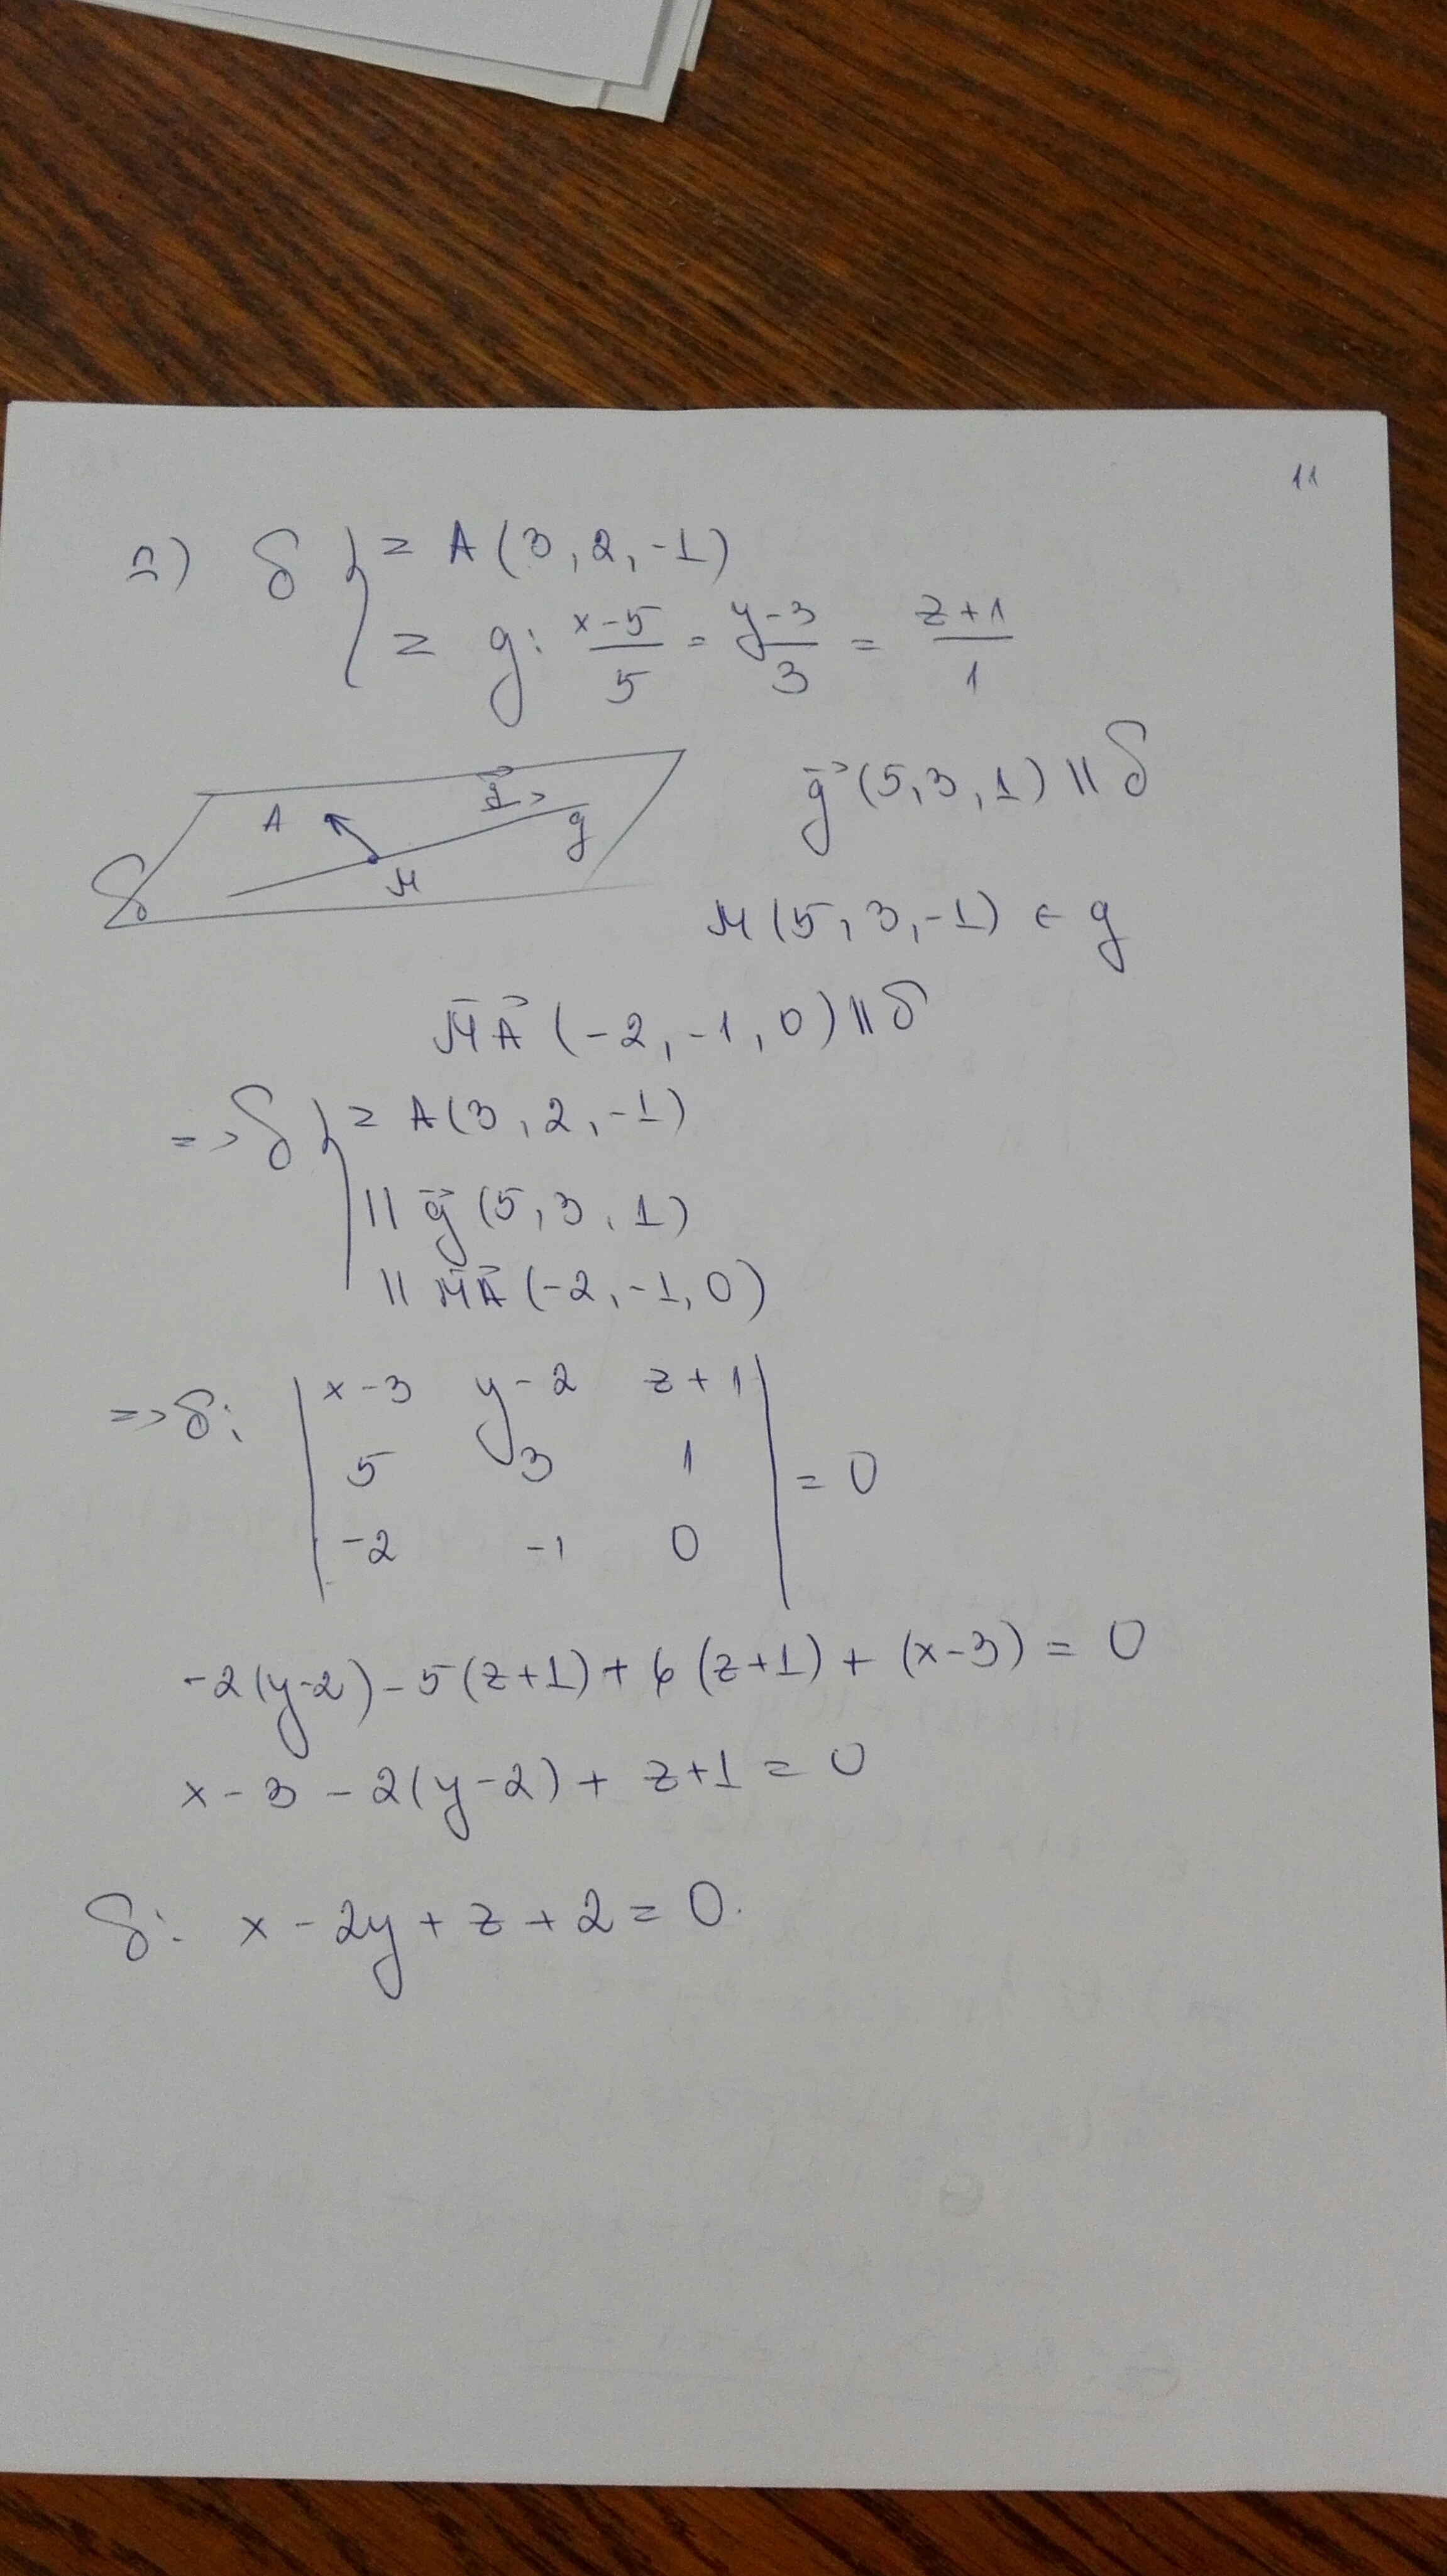 11
δ { z A(3, 2, -1)
z g: (x-5)/5 = (y-3)/3 = (z+1)/1
A g⃗ > g
δ M
g⃗ (5, 3, 1) || δ
M (5, 3, -1) ∈ g
MA⃗ (-2, -1, 0) || δ
=> δ { z A(3, 2, -1)
|| g⃗ (5, 3, 1)
|| MA⃗ (-2, -1, 0)
=> δ: | x-3 y-2 z+1 |
| 5 3 1 | = 0
| -2 -1 0 |
-2(y-2) - 5(z+1) + 6(z+1) + (x-3) = 0
x - 3 - 2(y-2) + z+1 = 0
δ: x - 2y + z + 2 = 0.